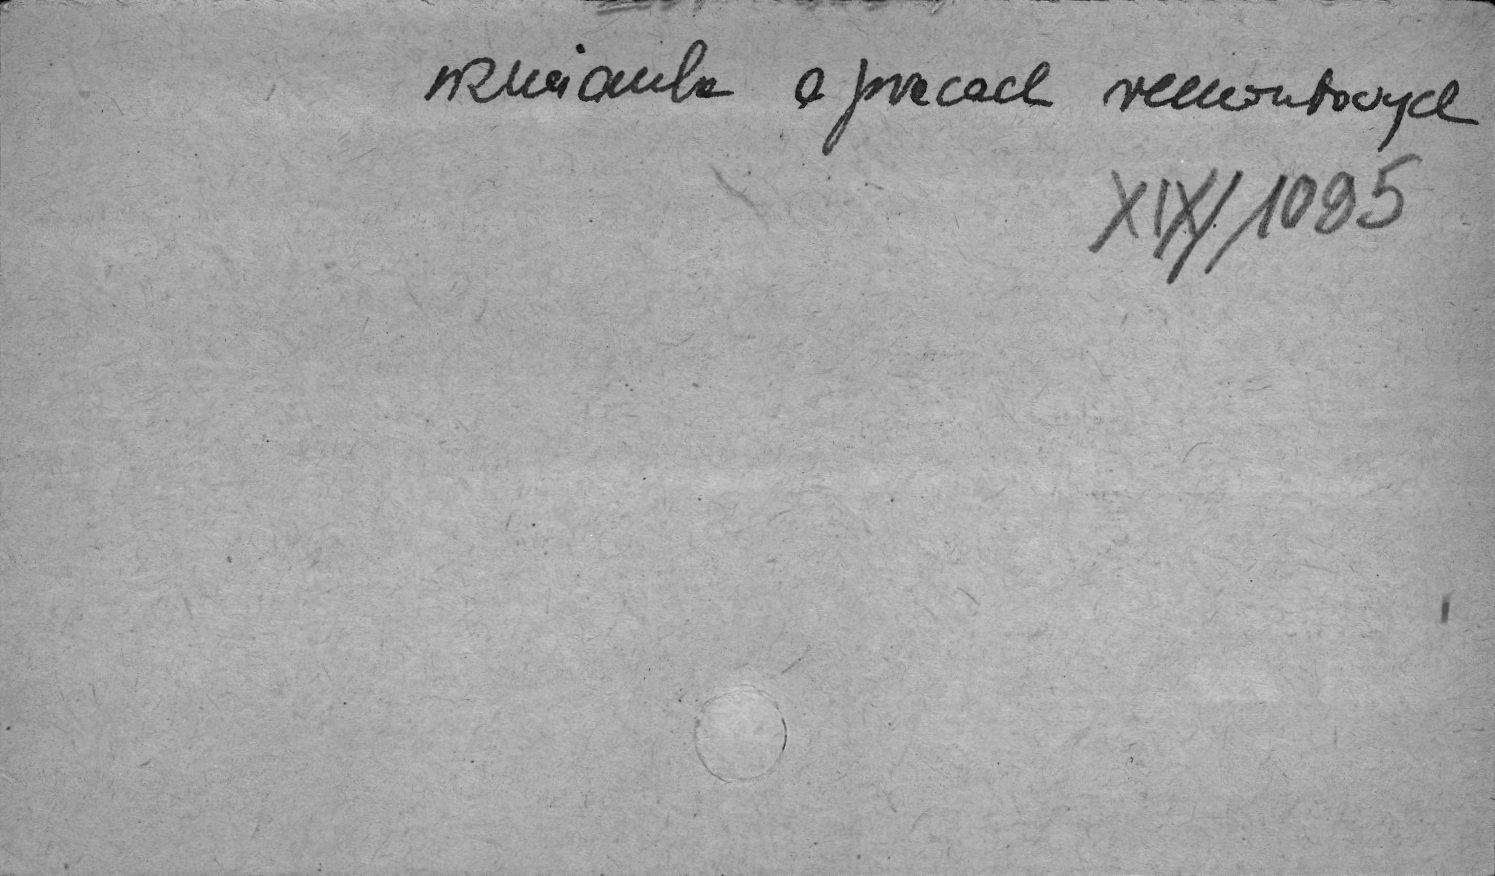 wzmianka o pracach remontowych
XIX/1095